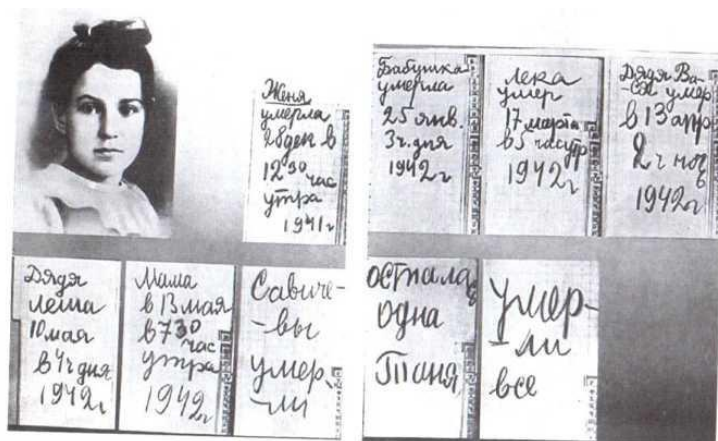 Женя
умерла
28 дек в
12 30 час
утра
1941 г
Бабушка
умерла
25 янв.
3 ч. дня
1942 г
Лека
умер
17 марта
в 5 час утр
1942 г
Дядя Ва-
ся умер
в 13 апр
2 ч ноч
1942 г
Дядя
Леша
10 мая
в 4 ч дня
1942 г
Мама
в 13 мая
в 7 30
час
утра
1942 г
Савиче-
-вы
умер-
-ли
осталась
одна
Таня
умер-
-ли
все